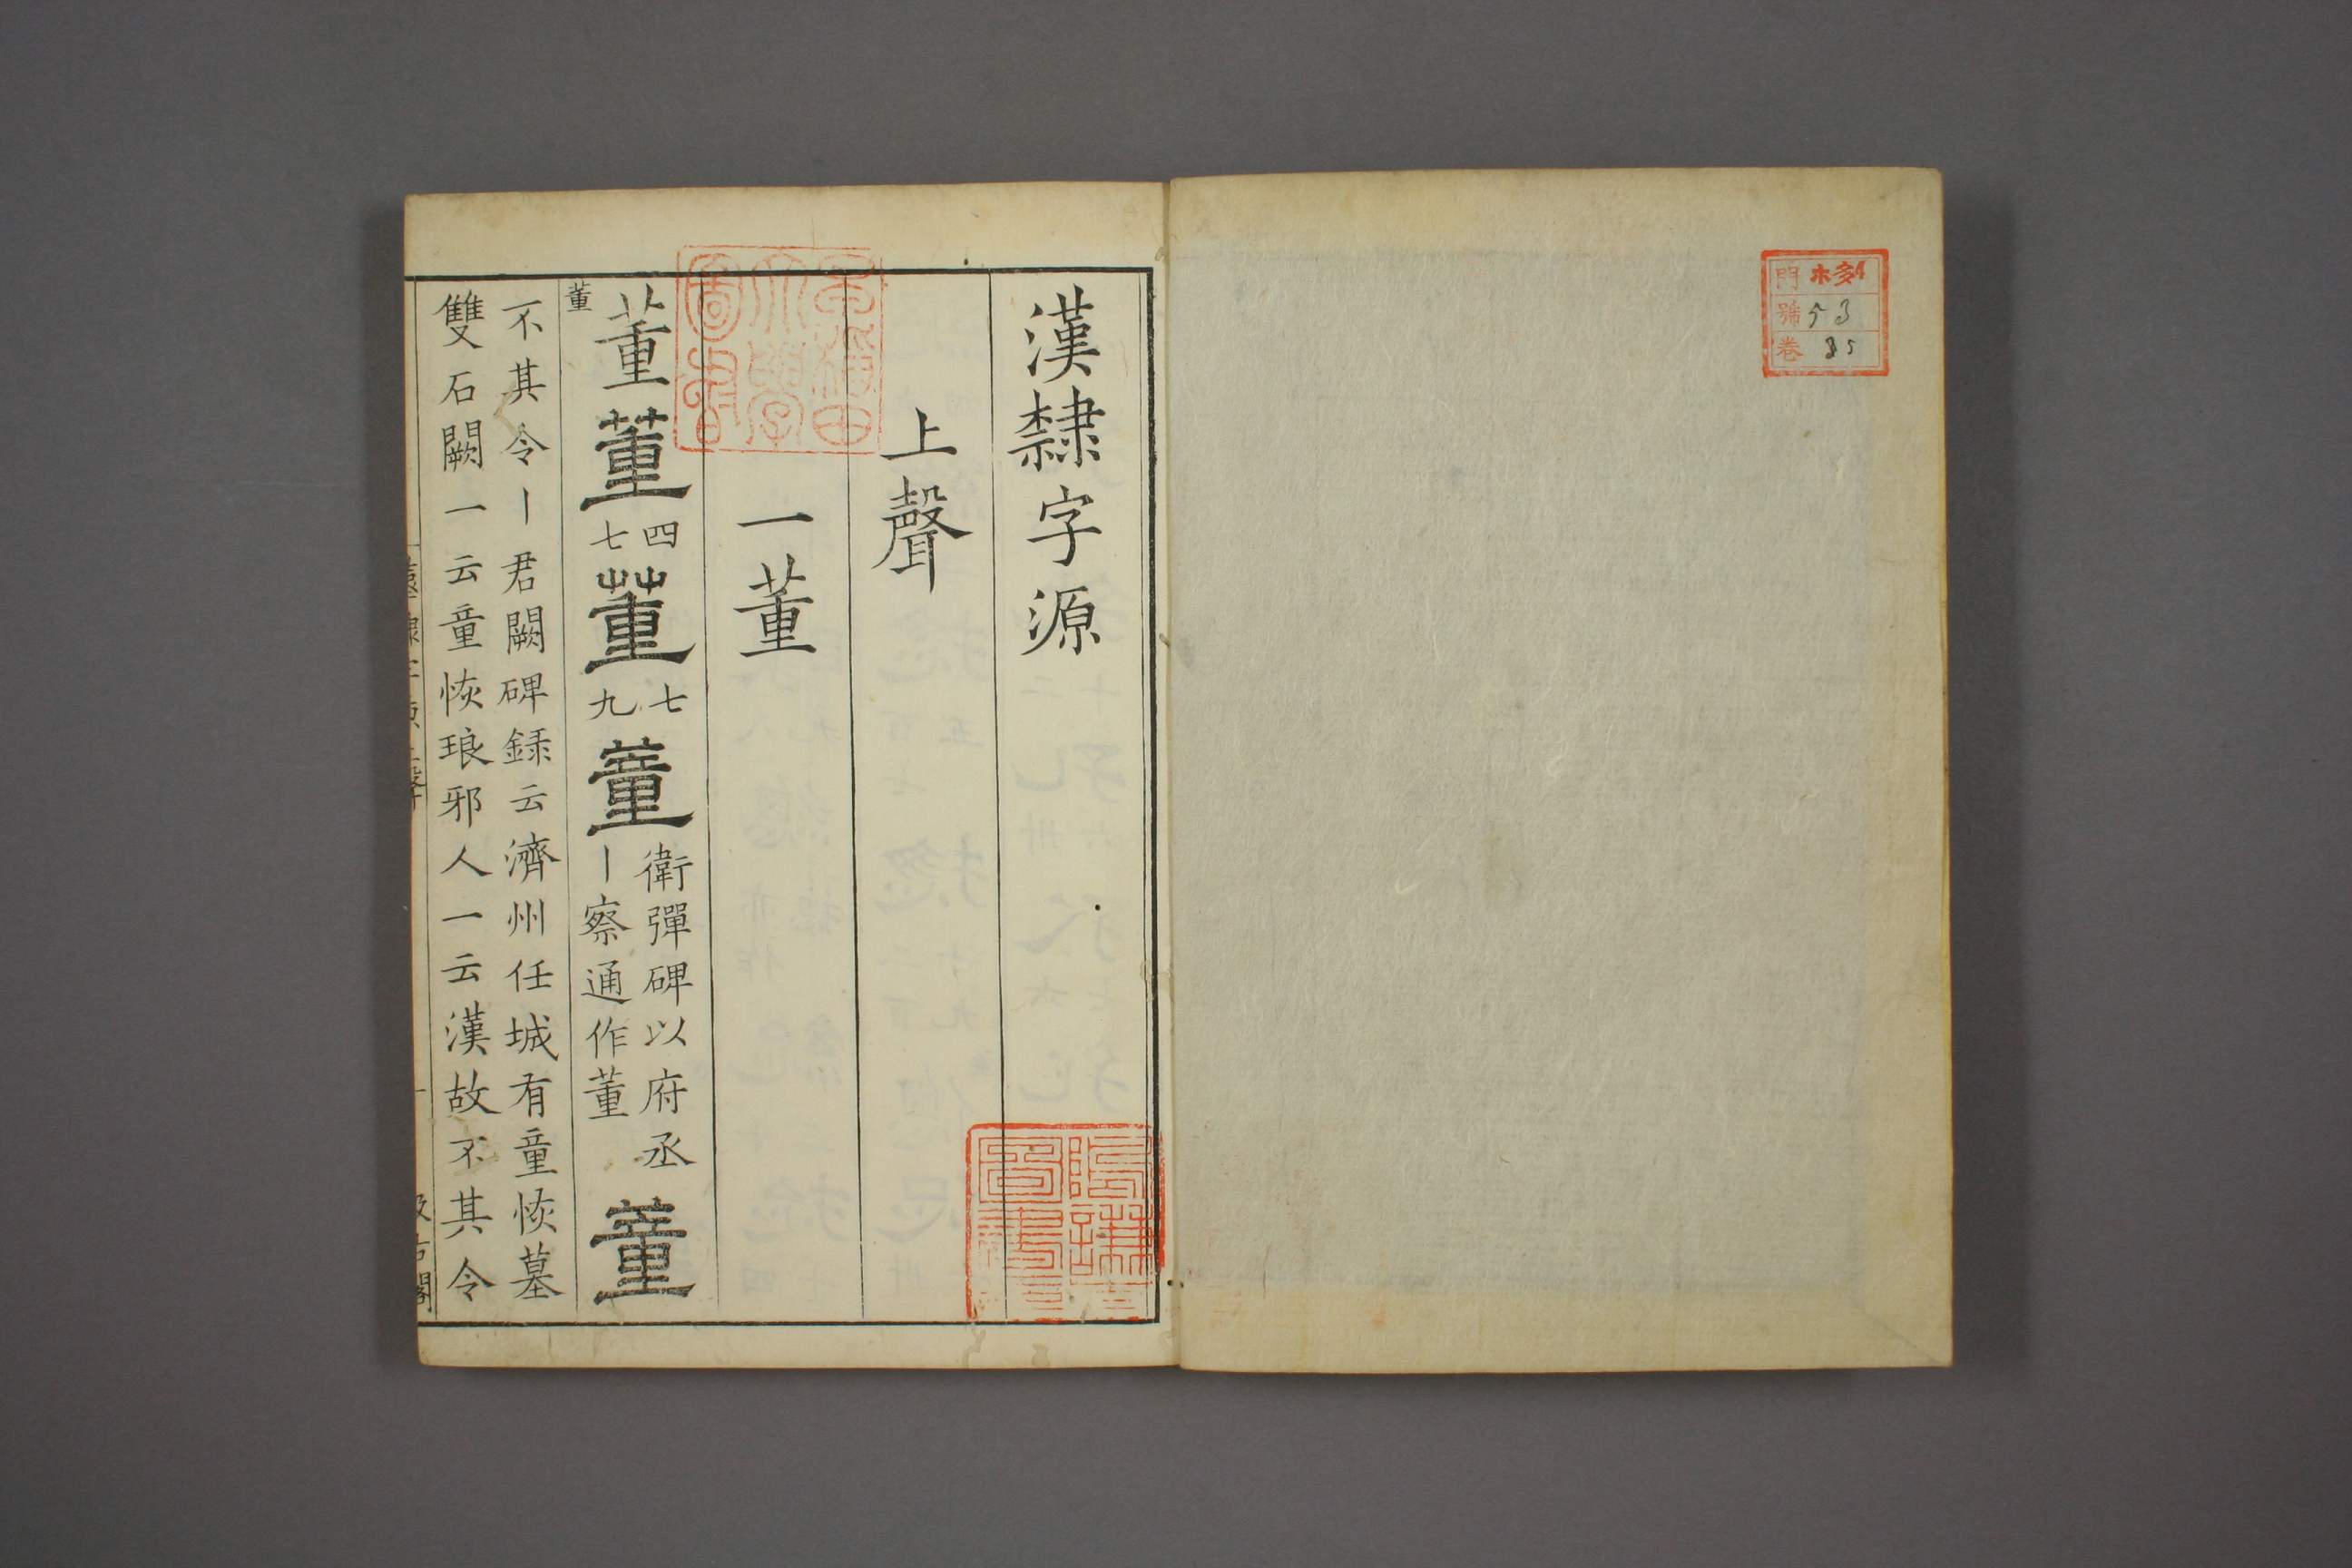 漢隸字源
上聲
一董
董董四七董九七董衛彈碑以府丞丨察通作董董
董
不其令丨君闕碑録云濟州任城有童恢墓
雙石闕一云童恢琅邪人一云漢故不其令
門
號 53
卷 85